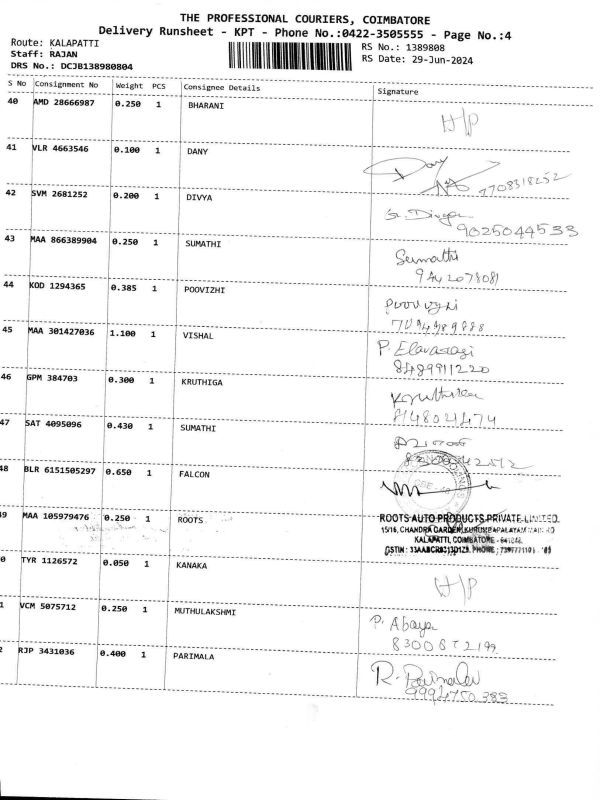 THE PROFESSIONAL COURIERS, COIMBATORE
Delivery Runsheet - KPT - Phone No.:0422-3505555 - Page No.:4
Route: KALAPATTI
Staff: RAJAN
DRS No.: DCJB138980804
RS No.: 1389808
RS Date: 29-Jun-2024
S No Consignment No Weight PCS Consignee Details Signature
40 AMD 28666987 0.250 1 BHARANI
H/P
41 VLR 4663546 0.100 1 DANY
Dany
7708318252
42 SVM 2681252 0.200 1 DIVYA
9025044533
43 MAA 866389904 0.250 1 SUMATHI
Sumathi
9442078081
44 KOD 1294365 0.385 1 POOVIZHI
45 MAA 301427036 1.100 1 VISHAL
P. Elavarasi
8489911220
46 GPM 384703 0.300 1 KRUTHIGA
8148021474
47 SAT 4095096 0.430 1 SUMATHI
48 BLR 6151505297 0.650 1 FALCON
49 MAA 105979476 0.250 1 ROOTS
ROOTS AUTO PRODUCTS PRIVATE LIMITED
KALAPATTI, COIMBATORE
0 TYR 1126572 0.050 1 KANAKA
H/P
1 VCM 5075712 0.250 1 MUTHULAKSHMI
P. Abaya
2 RJP 3431036 0.400 1 PARIMALA